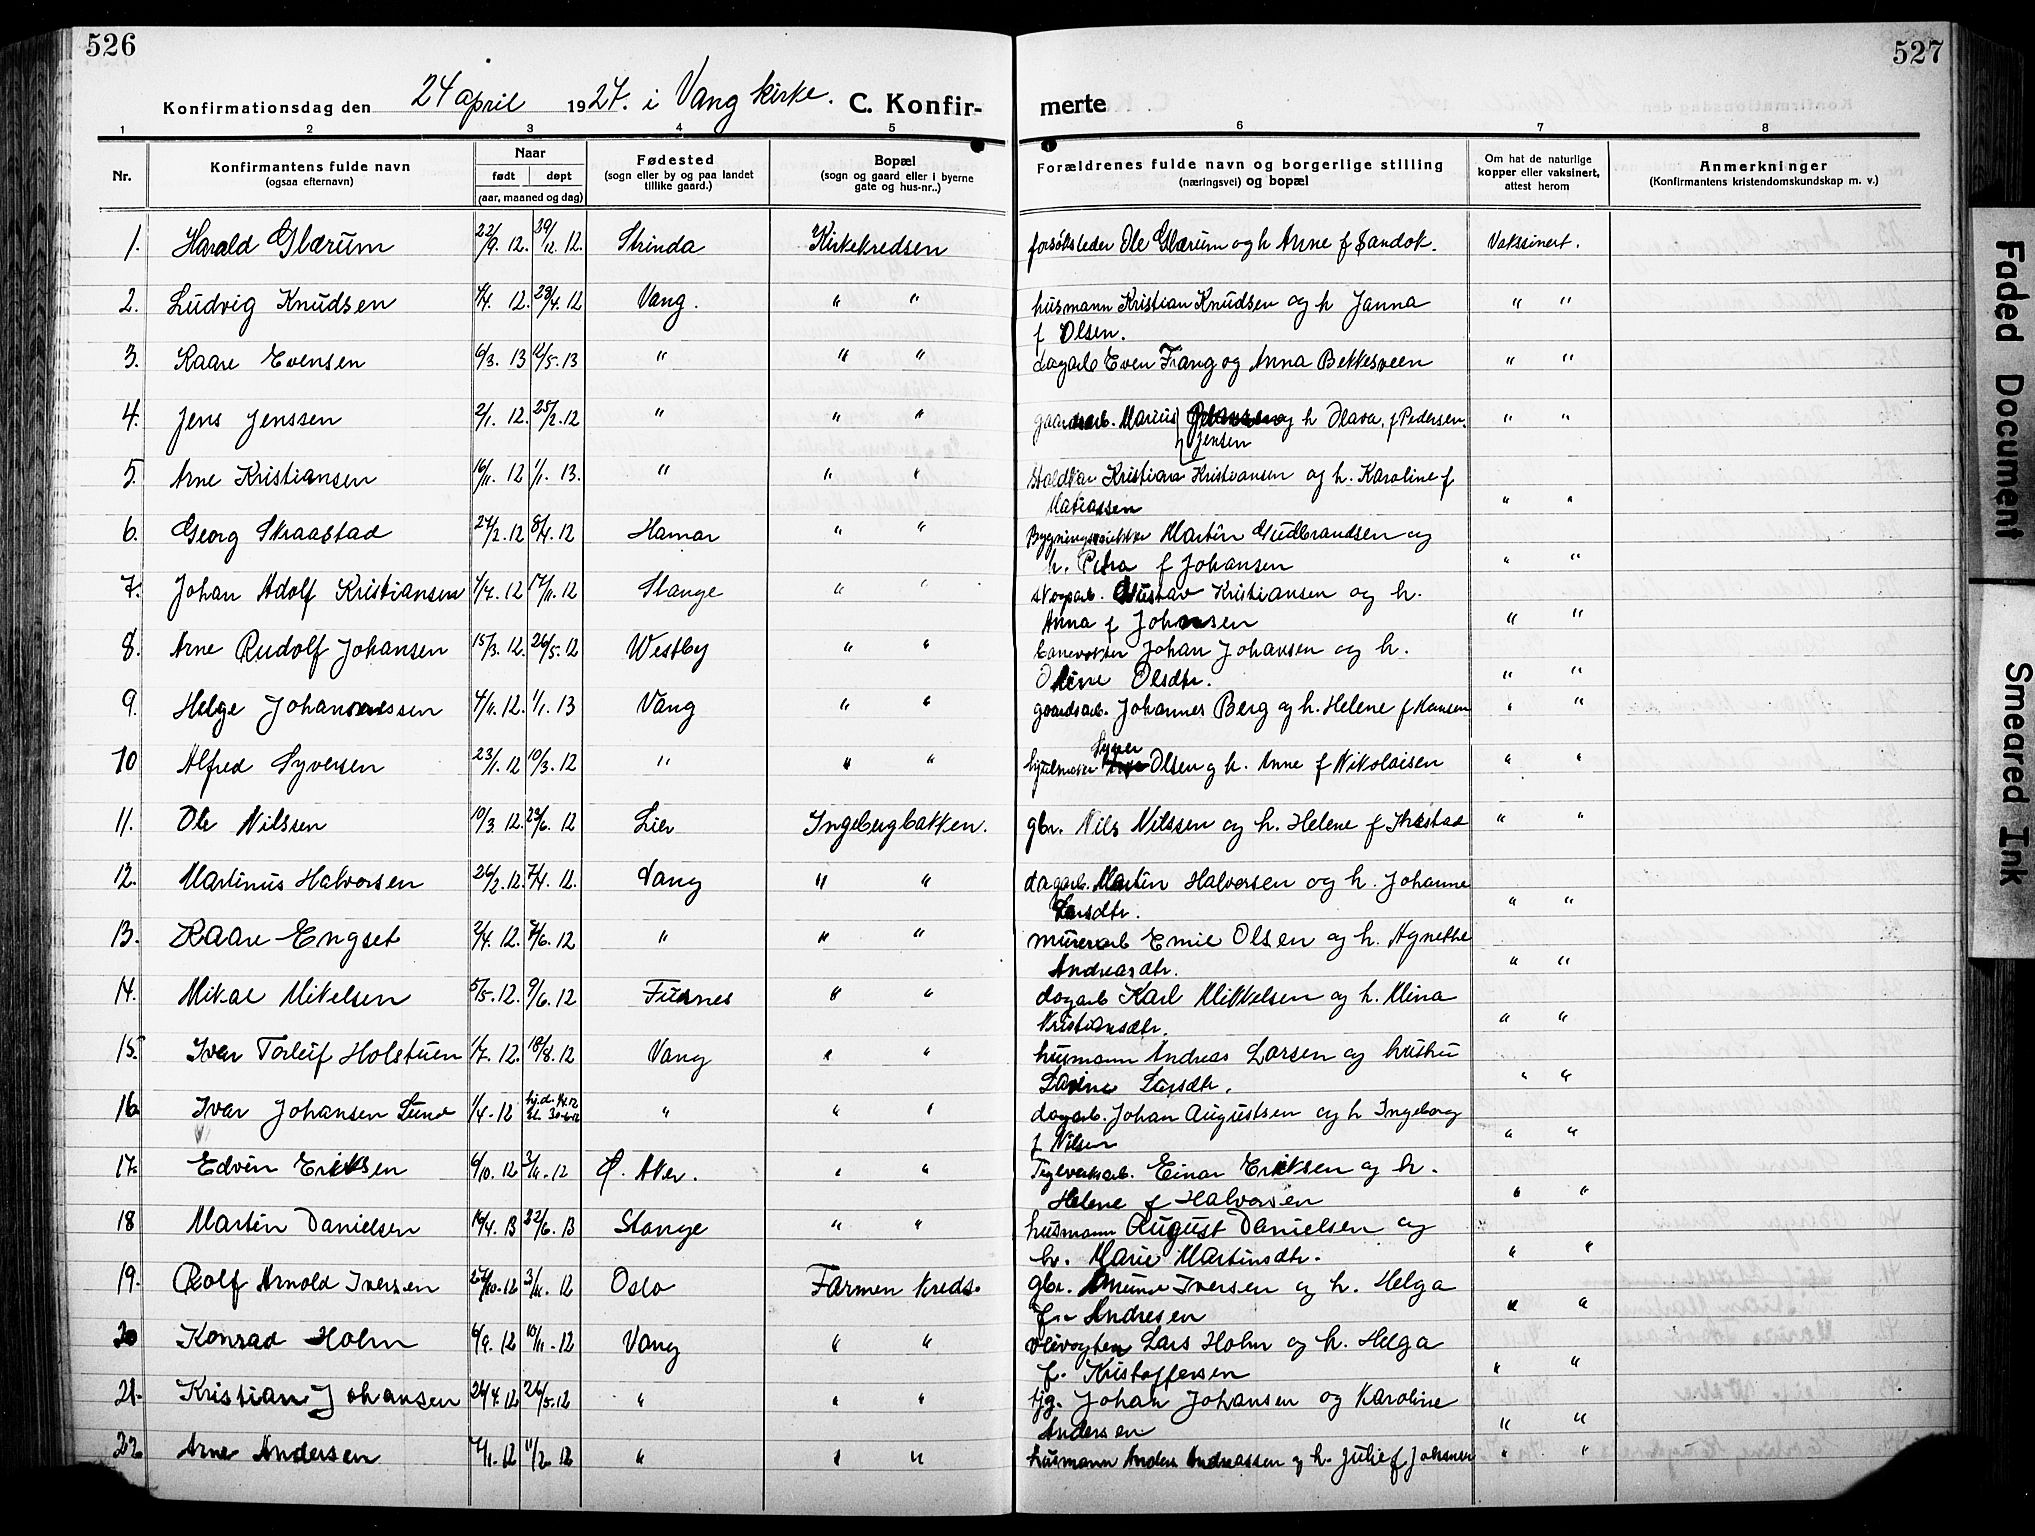 526
527
Konfirmationsdag den 24 april 1927. i Vang kirke. C. Konfir-
merte
1 2 3 4 5 6 7 8
Nr.
Konfirmantens fulde navn
(ogsaa efternavn)
Naar
født døpt
(aar, maaned og dag)
Fødested
(sogn eller by og paa landet
tillike gaard.)
Bopæl
(sogn og gaard eller i byerne
gate og hus-nr..)
Forældrenes fulde navn og borgerlige stilling
(næringsvei) og bopæl
Om hat de naturlige
kopper eller vaksinert,
attest herom
Anmerkninger
(Konfirmantens kristendomskundskap m. v.)
1. Harald Glærum 22/9. 12. 30/12. 12. Strinda Kirkekredsen forsøksleder Ole Glærum og h Anne f Sandok. Vaksinert.
2. Ludvig Knudsen 4/4. 12. 28/4. 12 Vang. " " husmann Kristian Knudsen og h Janna " "
f Olsen.
3. Kaare Evensen 6/3. 13 12/5. 13 " " " dagarb Even Frang og Anna Bekkesveen " "
4. Jens Jenssen 2/1. 12. 25/2. 12 " " " gaardsarb. Marius og h Olava, f Pedersen. " "
Jensen
5. Arne Kristiansen 16/11. 12 1/1. 13. " " " Kristiansen og h. Karoline f
Matiassen " "
6. Georg Skraastad 27/2. 12 8/4. 12 Hamar " " Martin Gudbrandsen og
h. Petra f Johansen " "
7. Johan Adolf Kristiansen 4/7. 12 17/11. 12 Stange " " skogsarb. Gustav Kristiansen og h.
Anna f Johansen " "
8. Arne Rudolf Johansen 15/3. 12. 26/5. 12 Westby " " banevokter Johan Johansen og h.
Oline Olsdtr. " "
9. Helge Johannessen 4/11. 12. 1/1. 13 Vang " " gaardsarb. Johannes Berg og h. Helene f Hansen " "
10 Alfred Syversen 23/1. 12 10/3. 12 " " " Syver
hjulmaker Olsen og h. Anne f Nikolaisen " "
11. Ole Nilssen 10/3. 12. 23/6. 12 Lier Ingebergbakken. gbr. Nils Nilssen og h. Helene f " "
12. Martinus Halvorsen 26/2. 12. 7/4. 12. Vang " " dagarb. Martin Halvorsen og h. Johanne
Larsdtr. " "
13. Kaare Engset 2/4. 12. /6. 12 " " " murerarb Emil Olsen og h. Agnethe
Andreasdtr. " "
14. Mikal Mikelsen 5/5. 12. 9/6. 12 Furnes " " dagarb Karl Mikkelsen og h. Mina
Kristiansdtr. " "
15. Ivar Torleif Holstuen 1/7. 12. 18/8. 12 Vang " " husmann Andreas Larsen og hustru
Larsdtr. " "
16 Ivar Johansen Lund 1/4. 12 " " " dagarb. Johan Augustsen og h Ingeborg
f Nilsen " "
17. Edvin Eriksen 6/10. 12 3/11. 12 Ø. Aker. " " Teglverksarb. Einar Eriksen og h.
Helene f Halvorsen " "
18 Martin Danielsen 16/4. 13 22/6. 13 Stange " " husmann August Danielsen og
h. Marie Martinsdtr. " "
19. Rolf Arnold Iversen 27/10. 12 3/11. 12 Oslo Farmen kreds. gbr. Amund Iversen og h. Helga
f. Andresen " "
20 Konrad Holm 6/9. 12 10/11. 12 Vang " " veivogter Lars Holm og h. Helga
f. Kristoffersen " "
21. Kristian Johansen 24/4. 12 26/5. 12 " " " tjg. Johan Johansen og Karoline
Andersen " "
22. Arne Andersen /1. 12 11/2. 12 " " " husmann Anders Andreassen og h. Julie f Johansen " "
Faded Document
Smeared Ink